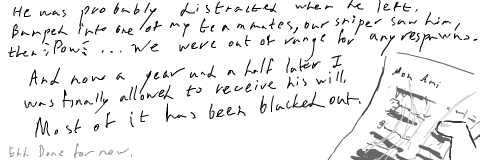 He was probably distracted when he left.
Bumped into one of my teammates, our sniper saw him,
then "Pow" ... We were out of range for any respawns.
And now a year and a half later I
was finally allowed to receive his will.
Most of it has been blacked out.
Mon Ami
Ehh Done for now.